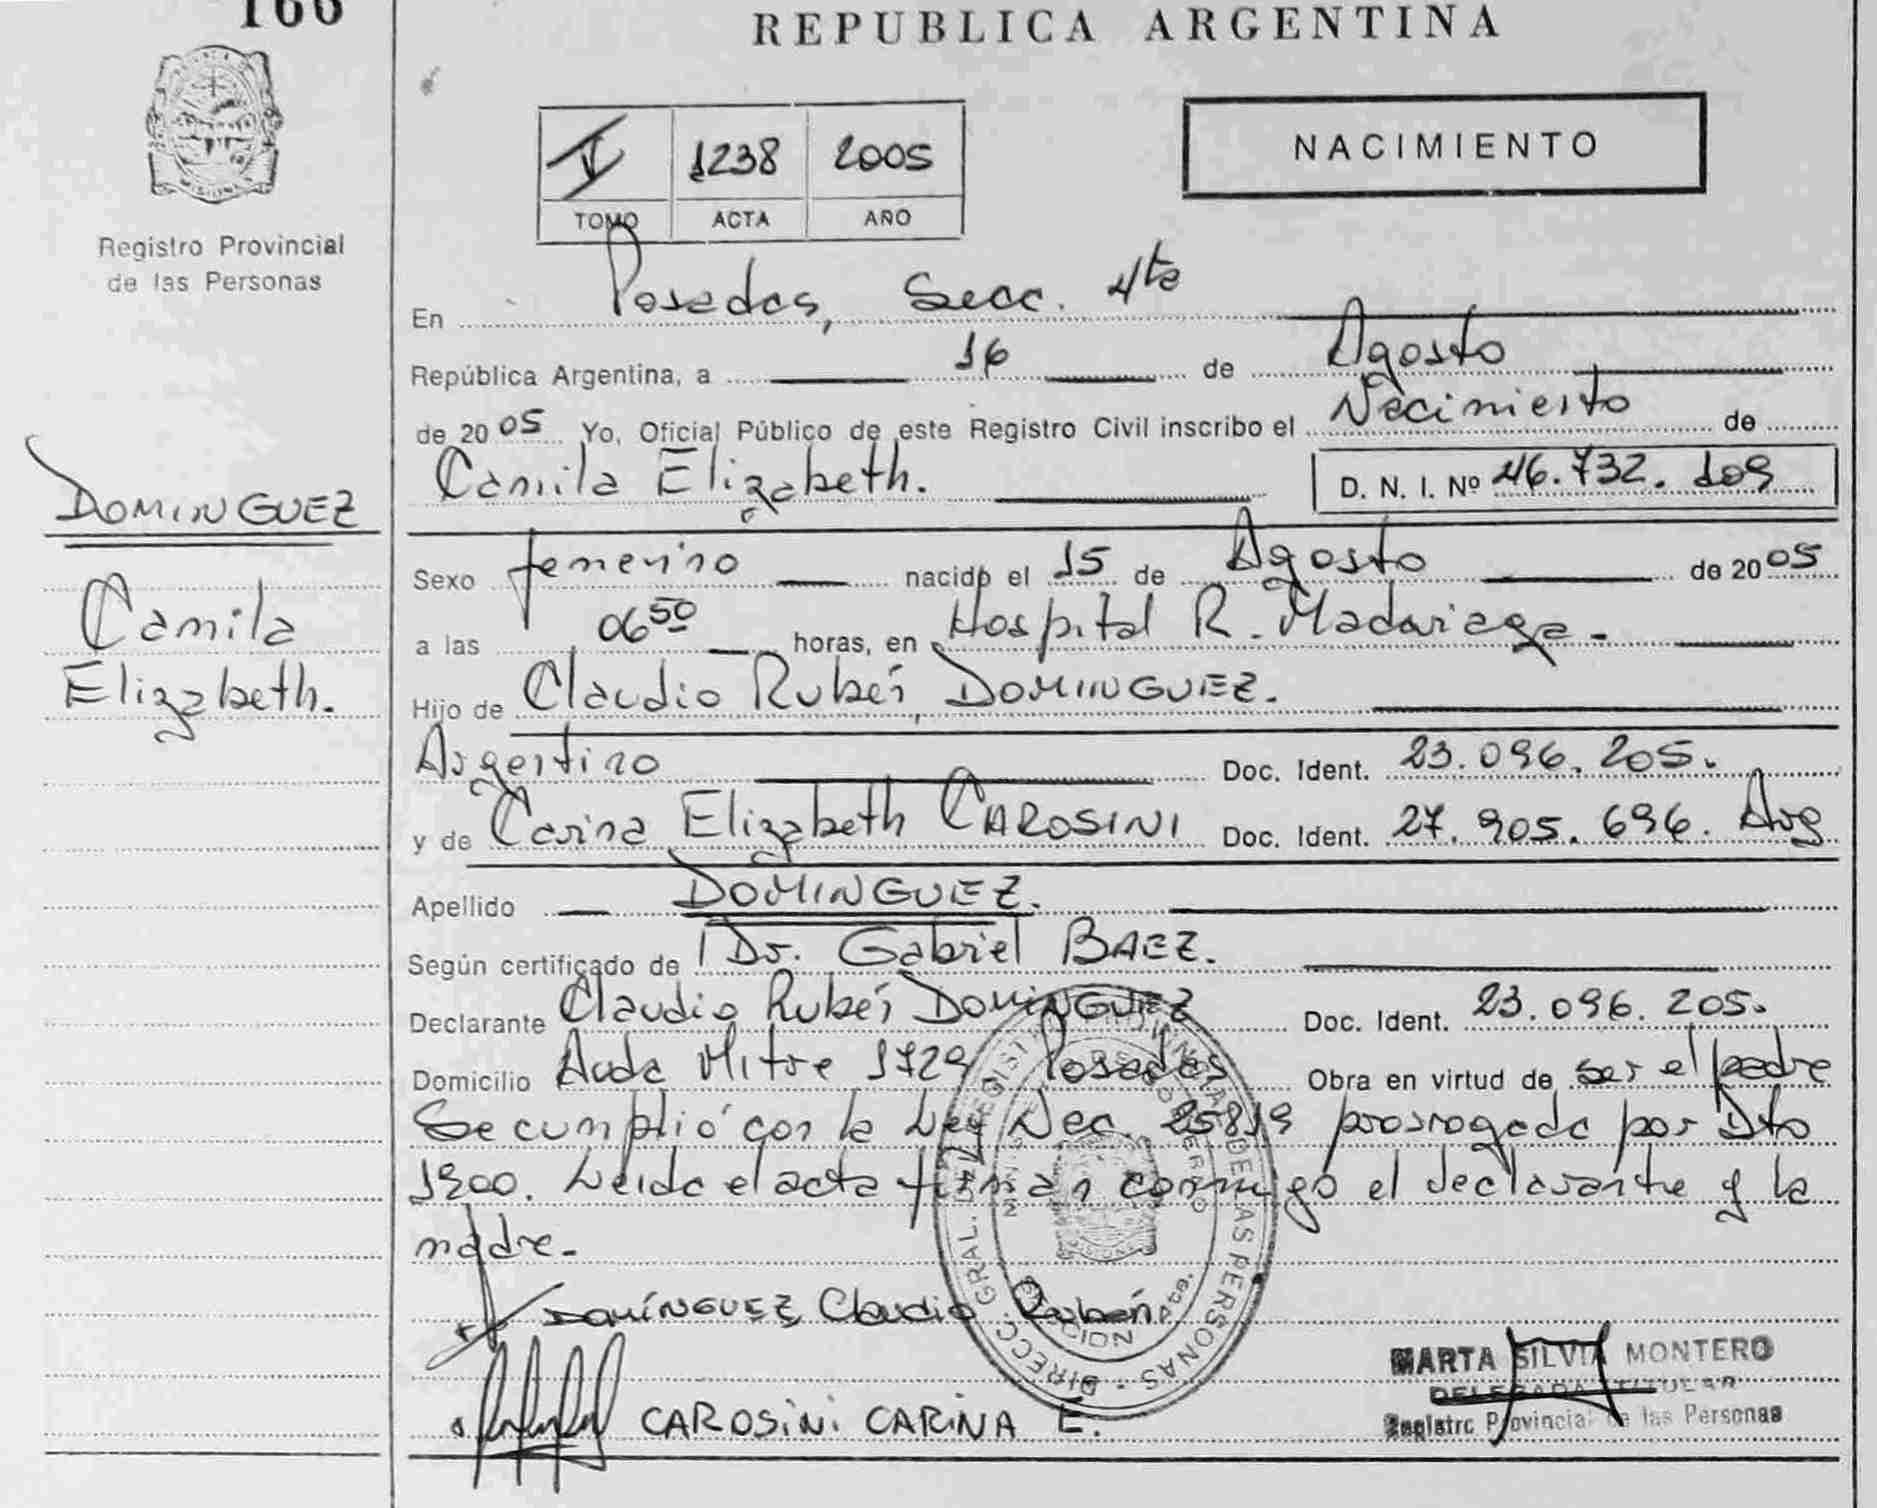 166
REPUBLICA ARGENTINA
Registro Provincial
de las Personas
I 1238 2005
TOMO ACTA AÑO
NACIMIENTO
En Posadas, Secc. 4ta
República Argentina, a 16 de Agosto
de 2005 Yo, Oficial Público de este Registro Civil inscribo el Nacimiento de
Camila Elizabeth. D. N. I. Nº 46.732.109
DOMINGUEZ
Camila
Elizabeth.
Sexo femenino nacido el 15 de Agosto de 2005
a las 06 50 horas, en Hospital R. Madariaga.
Hijo de Claudio Rubén DOMINGUEZ.
Argentino Doc. Ident. 23.096.205.
y de Carina Elizabeth CAROSINI Doc. Ident. 27.905.696. Arg
Apellido DOMINGUEZ.
Según certificado de Dr. Gabriel BAEZ.
Declarante Claudio Rubén DOMINGUEZ Doc. Ident. 23.096.205.
Domicilio Avda Mitre 1729 Posadas Obra en virtud de ser el padre
Se cumplió con la Ley Nac. 25819 prorrogada por Dto
1900. Leida el acta firman conmigo el declarante y la
madre.
DOMÍNGUEZ Claudio Rubén
CAROSINI CARINA E.
MARTA SILVIA MONTERO
DELEGADA TITULAR
Registro Provincial de las Personas
DIRECC. GRAL. DEL REGISTRO DE LAS PERSONAS
MISIONES